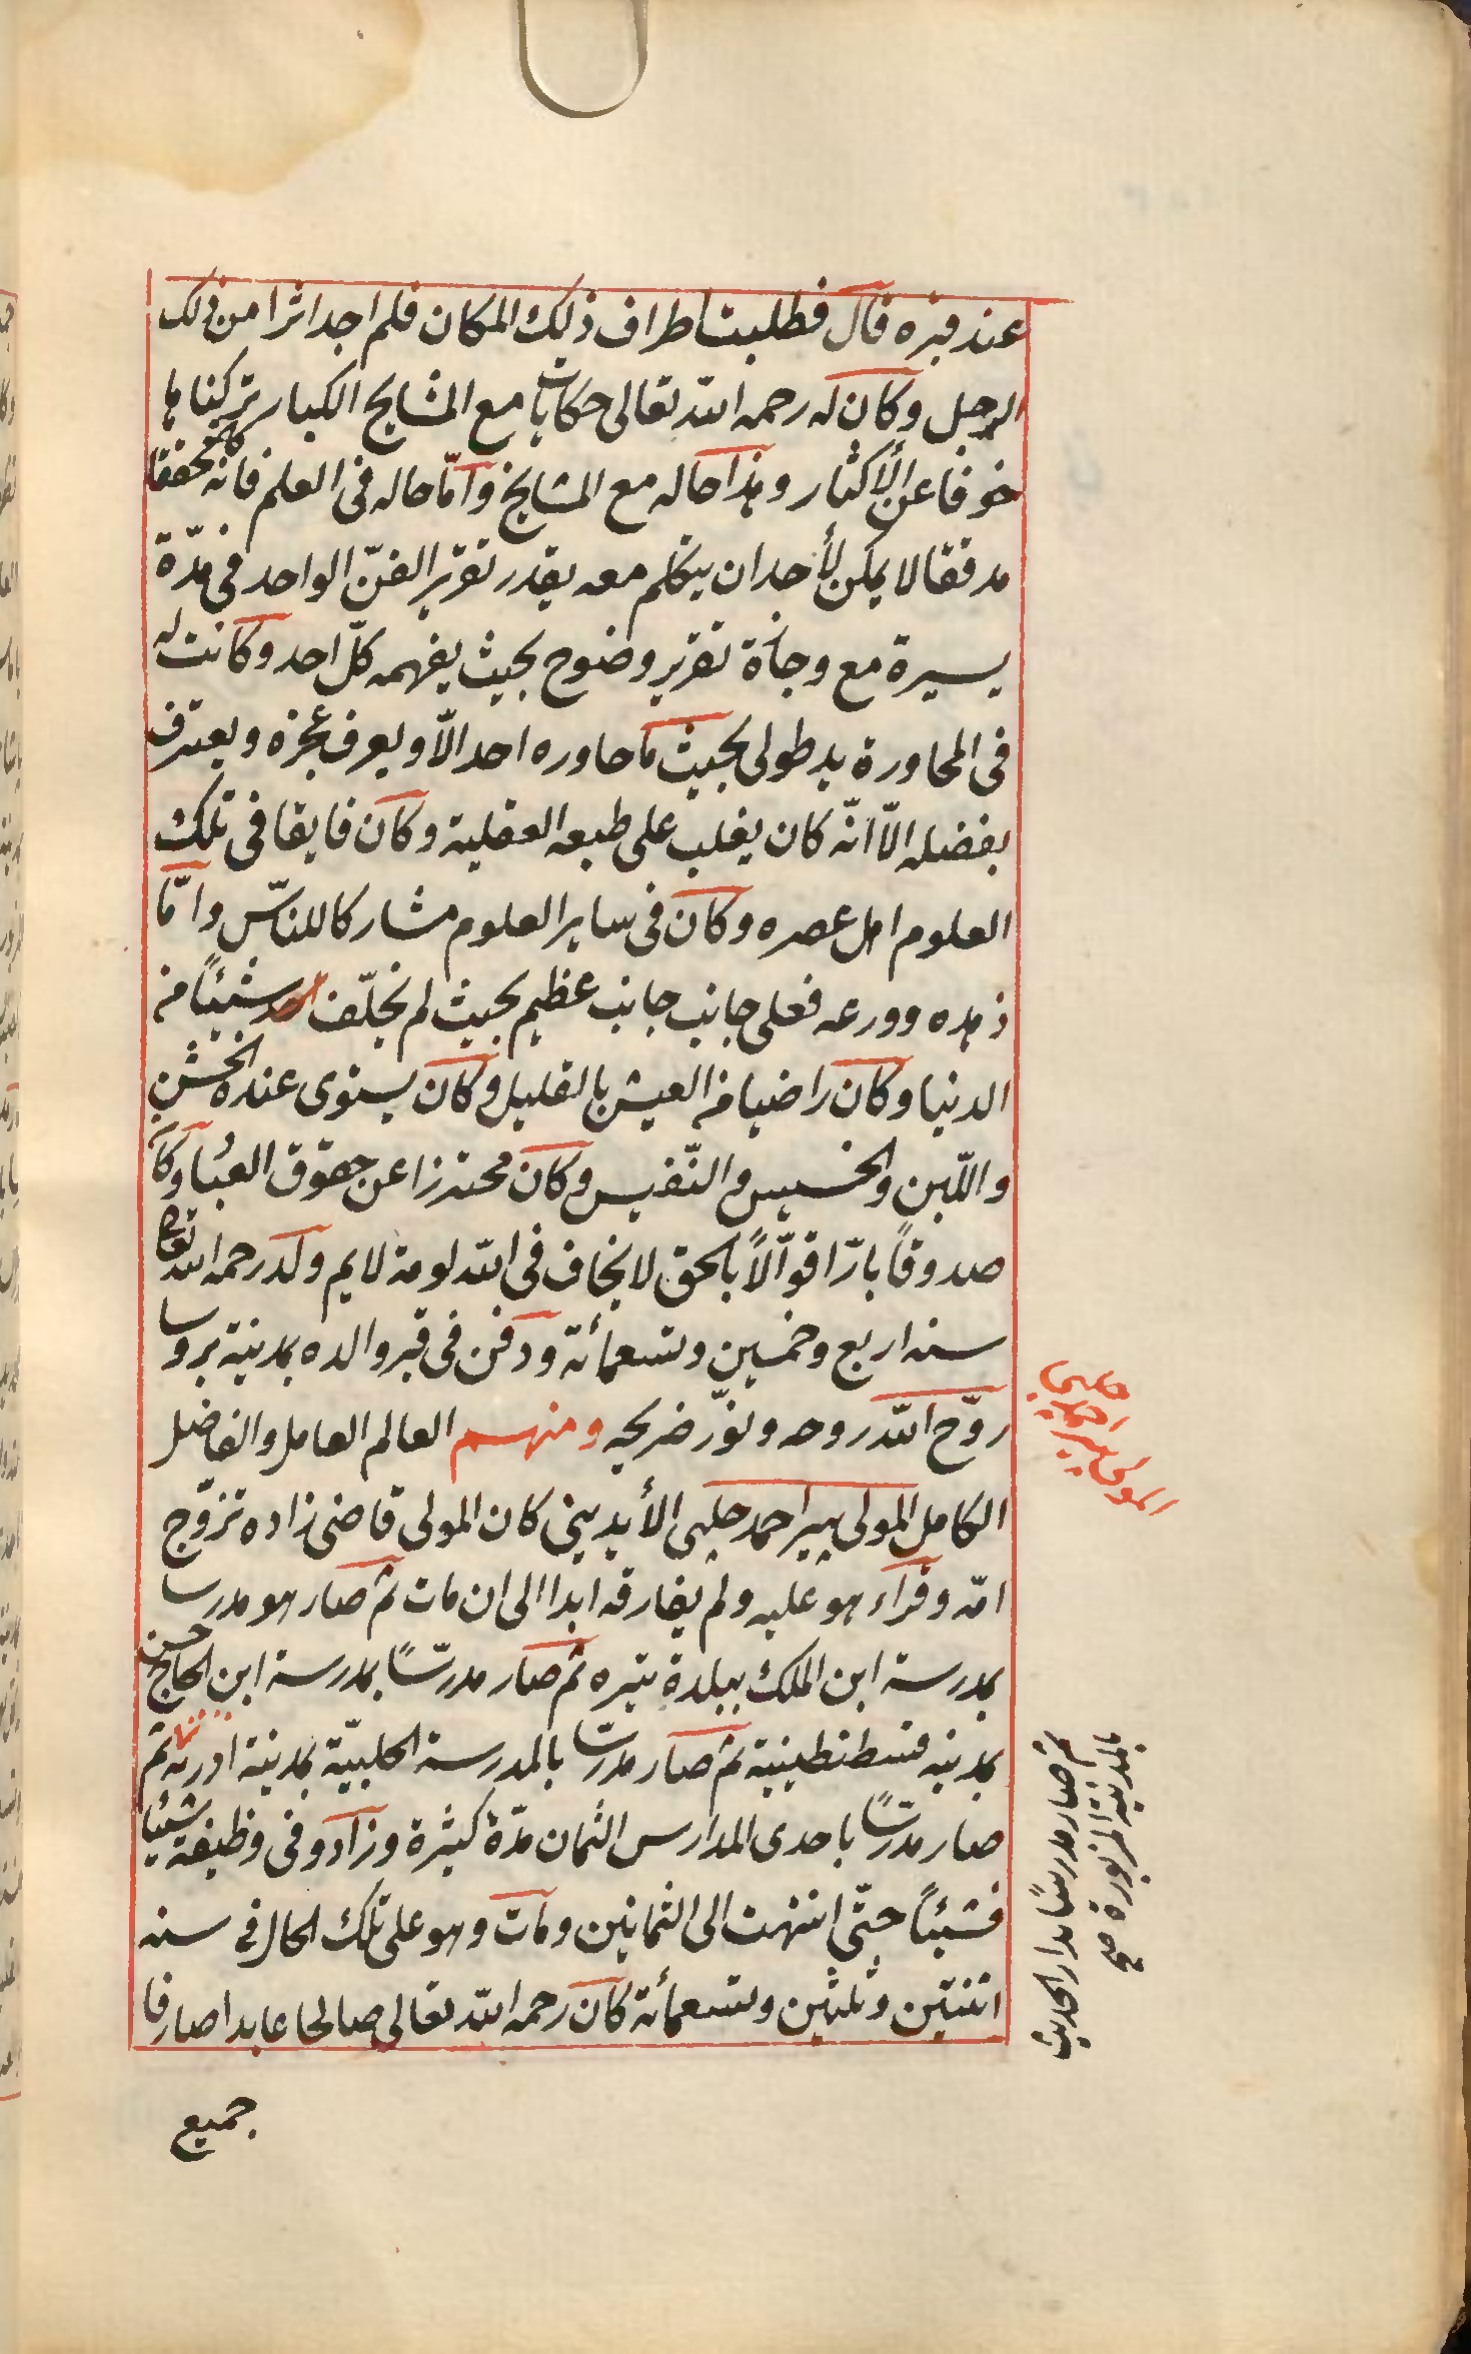 عند قبره قال فطلبت اطراف ذلك المكان فلم اجد اثرا من ذلك
الرجل وكان له رحمه الله تعالى حكايات مع المشايخ الكبار تركناها
خوفا عن الأكثار وهذا حاله مع المشايخ وامّا حاله فى العلم فانه كان محققا
مدققا لا يمكن لأحد ان يتكلم معه يقدر تقرير الفنّ الواحد فى مدّة
يسيرة مع وجازة تقرير وضوح بحيث يفهمه كلّ احد وكانت له
فى المحاورة يد طولى بحيث ما حاوره احد الّا ويعرف عجزه ويعترف
بفضله الّا انّه كان يغلب على طبعه العقلية وكان فايقا فى تلك
العلوم اهل عصره وكان فى ساير العلوم مشاركا للناسّ وامّا
زهده وورعه فعلى جانب جانب عظيم بحيث لم يخلّف شيئًا من
الدنيا وكان راضيا من العيش بالقليل وكان يستوى عنده الخشن
واللّين والخسيس والنّفيس وكان محترزا عن حقوق العباد وكان
صدوقًا بارّا قوّالًا بالحق لا يخاف فى الله لومة لايم ولد رحمه الله تعالى
سنه اربع وخمسين وتسعمائة ودفن فى قبر والده بمدينة بروسا
روّح الله روحه ونوّر ضريحه ومنهم العالم العامل والفاضل
الكامل المولى پير احمد چلبى الأيدينى كان المولى قاضى زاده تزوّج
امّه وقراء هو عليه ولم يفارقه ابدا الى ان مات ثم صار هو مدرسا
بمدرسة ابن الملك ببلدة تيره ثم صار مدرسًّا بمدرسة ابن الحاج حسن
بمدينه قسطنطينية ثم صار مدرسّا بالمدرسة الحلبيّة بمدينة ادرنه ثم
صار مدرسًّا باحدى المدارس الثمان مدّة كثيرة وزادو فى وظيفته شيئا
فشيئًا حتّى انتهت الى الثمانين ومات وهو على تلك الحال فى سنه
اثنتين وثلثين وتسعمائة كان رحمه الله تعالى صالحا عابدا صارفا
جميع
المولى پير احمد چلبى
ثم صار مدرسًا بدار الحديث
بالمدينة المزبورة صح